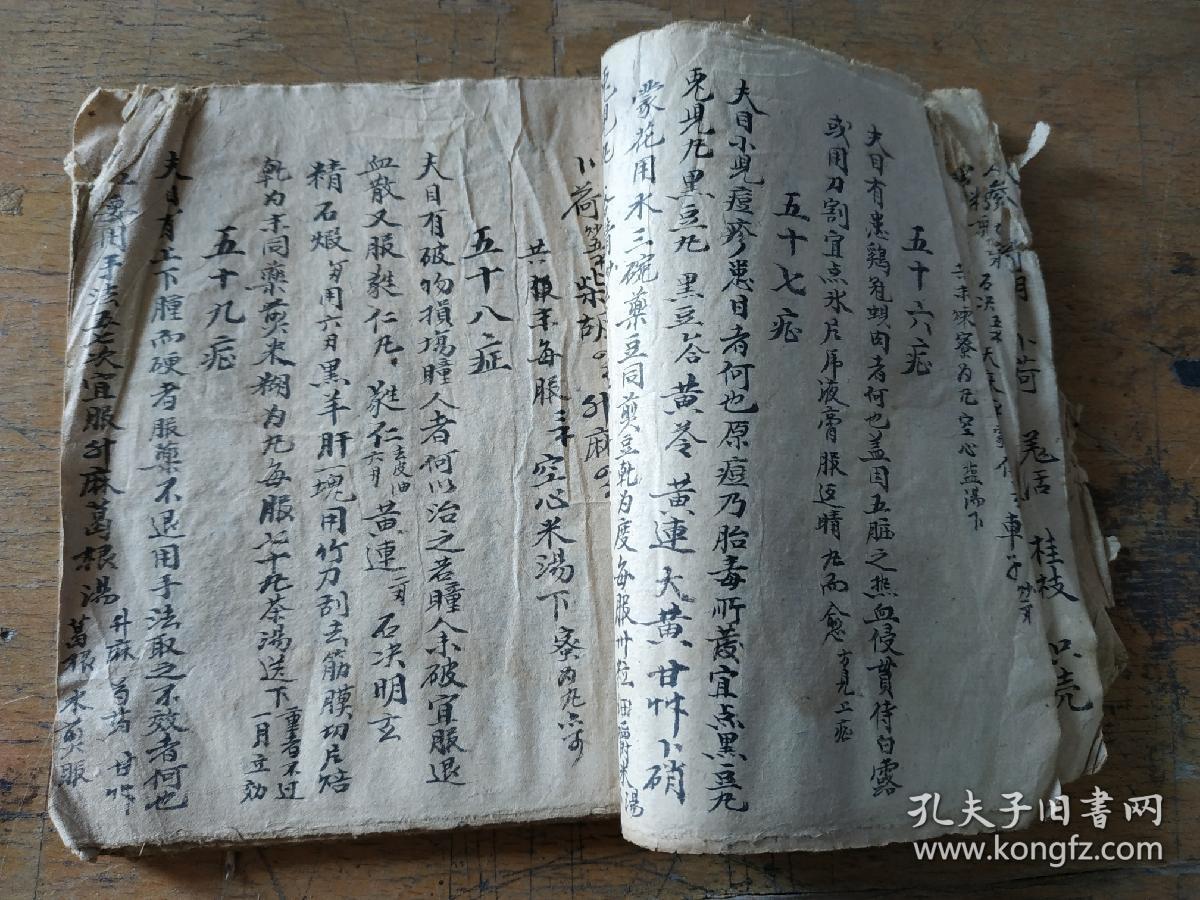 小荷 羗活 桂枝 只壳
石决
車子
末煉蜜为丸空心盐湯下
五十六症
夫目有患鷄冠蜆肉者何也盖因五脏之热血侵貫待白露
或用刀割宜点氷片 液膏服还睛丸而愈 方見上症
五十七症
夫目小児痘疹患目者何也原痘乃胎毒所發宜点黑豆丸
兎児丸黑豆丸 黑豆 黄芩 黄連 大黄 甘艸 卜硝
蒙花用水三碗藥豆同煎豆乾为度每服卅粒 湯
兎児丸
卜荷 柴胡 升麻
共 末每服三 空心米湯下 蜜为丸亦可
五十八症
夫目有破物損塲瞳人者何以治之若瞳人未破宜服退
血散又服蕤仁丸 蕤仁 去皮油 六月 黄連 石决明 玄
精石煅 用六月黑羊肝一塊用竹刀刮去筋膜切片焙
乾为末同藥煎米糊为丸每服七十丸茶湯送下 重者不过一月立効
五十九症
夫目有上下腫而硬者服藥不退用手法取之不效者何也
用手法五七次宜服升麻葛根湯 升麻 芍药 甘艸 葛根 水煎服
孔夫子旧书网
www.kongfz.com